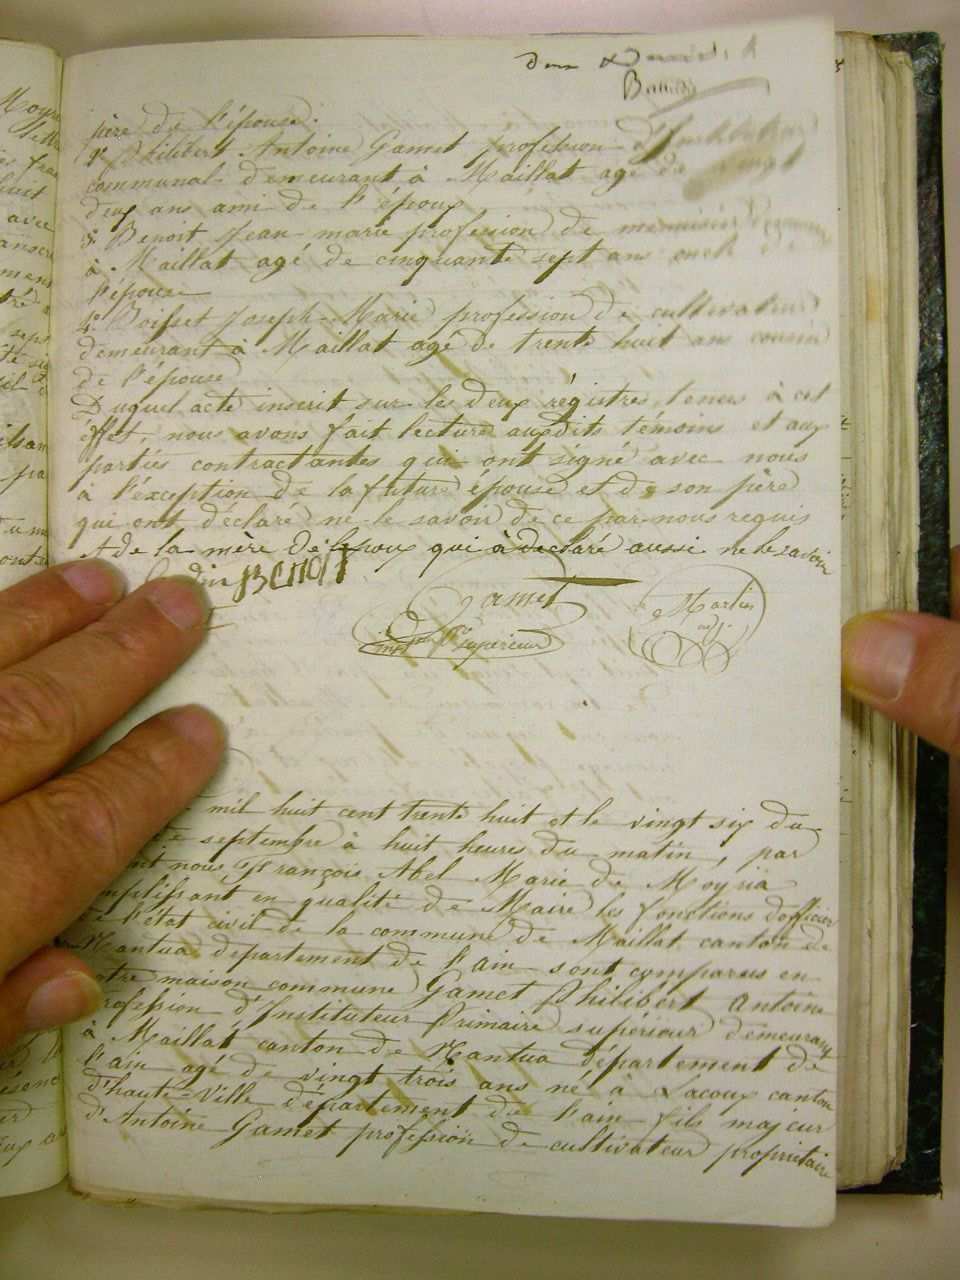 père de l'épouse.
2° Philibert Antoine Gamet profession d'Instituteur
communal demeurant à Maillat agé de vingt
deux ans ami de l'époux
3° Benoit Jean marie profession de menuisier
à Maillat agé de cinquante sept ans oncle de
l'épouse
4° Boisset Joseph-Marie profession de cultivateur
demeurant à Maillat agé de trente huit ans cousin
de l'épouse
Duquel acte inscrit sur les deux régistres tenus à cet
éffet, nous avons fait lecture auxdits témoins et aux
parties contractantes qui ont signé avec nous
à l'éxception de la future épouse et de son père
qui ont déclaré ne le savoir de ce par nous requis
et de la mère de l'époux qui à declaré aussi ne le savoir
BENOIT
Gamet
Supérieur
Martin
adj.
mil huit cent trente huit et le vingt six du
septembre à huit heures du matin, par
nous François Abel Marie de Moyria
remplissant en qualité de Maire les fonctions d'officier
de l'état civil de la commune de Maillat canton de
Nantua departement de l'ain sont comparus en
notre maison commune Gamet Philibert Antoine
profession d'Instituteur Primaire supérieur demeurant
à Maillat canton de Nantua département de
l'ain agé de vingt trois ans né à Lacoux canton
d'haute-Ville département de l'ain fils majeur
d'Antoine Gamet profession de cultivateur propriétaire